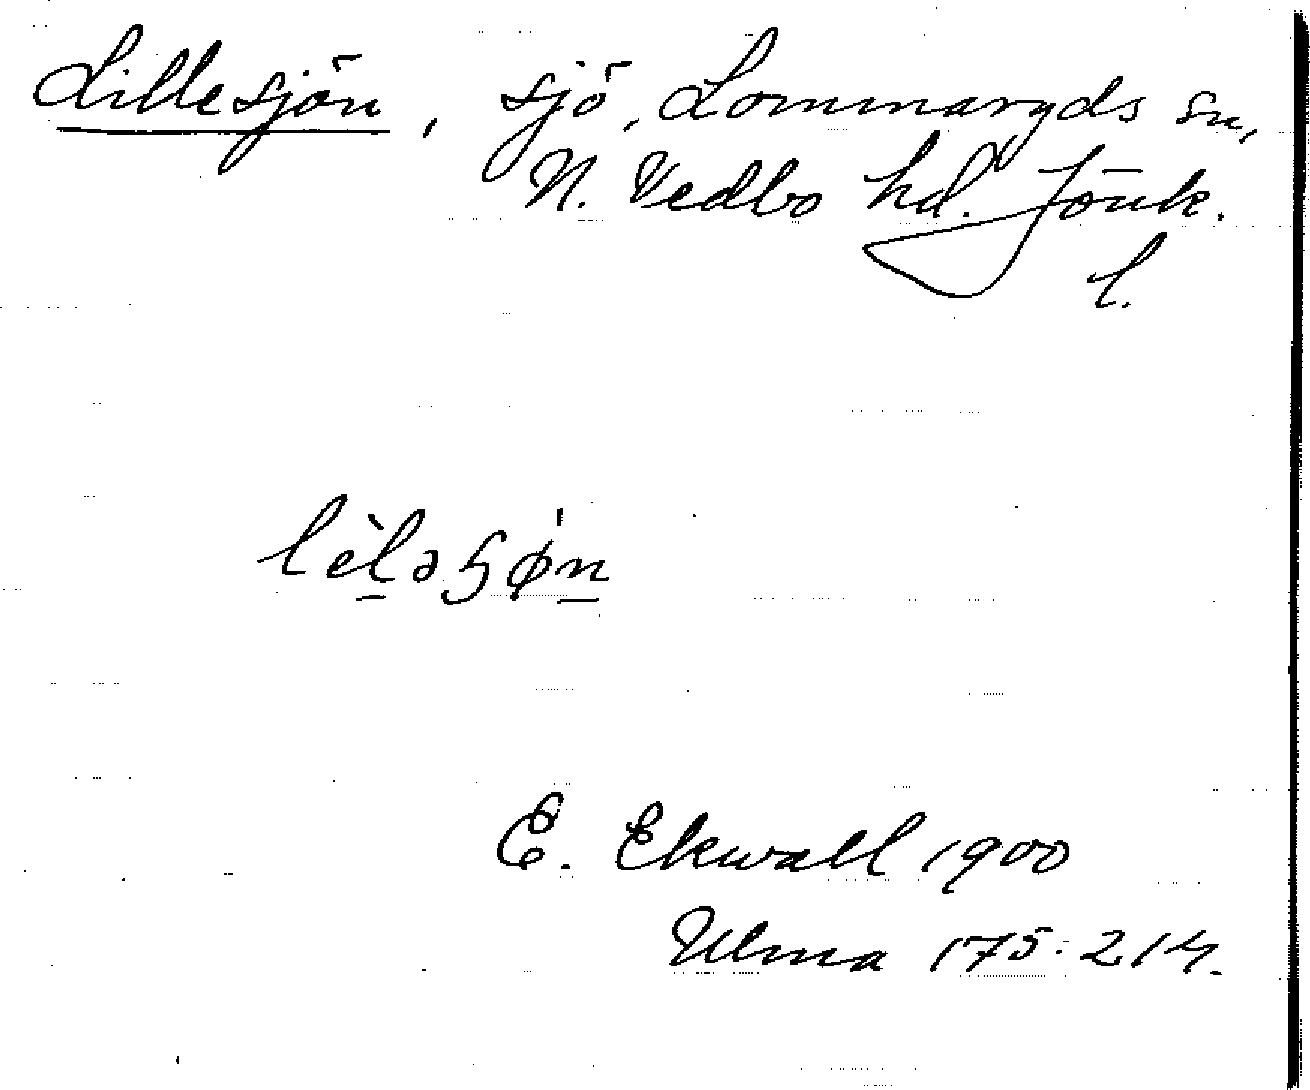 Lillesjön, sjö, Lommaryds sn,
N. Vedbo hd. Jönk.
l.
lèl̠əɧøn̠
E. Ekwall 1900
Ulma 175:214.